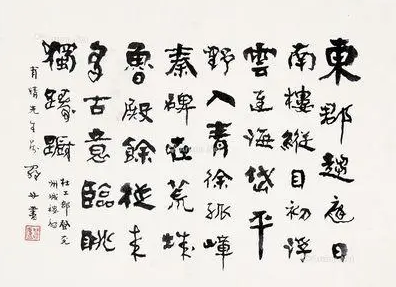 東郡趨庭日
南樓縱目初浮
雲連海岱平
野入青徐孤嶂
秦碑在荒城
魯殿餘從來
多古意臨眺
獨躊躕
杜工部登兗
州城樓詩
晴先生 羅丹書